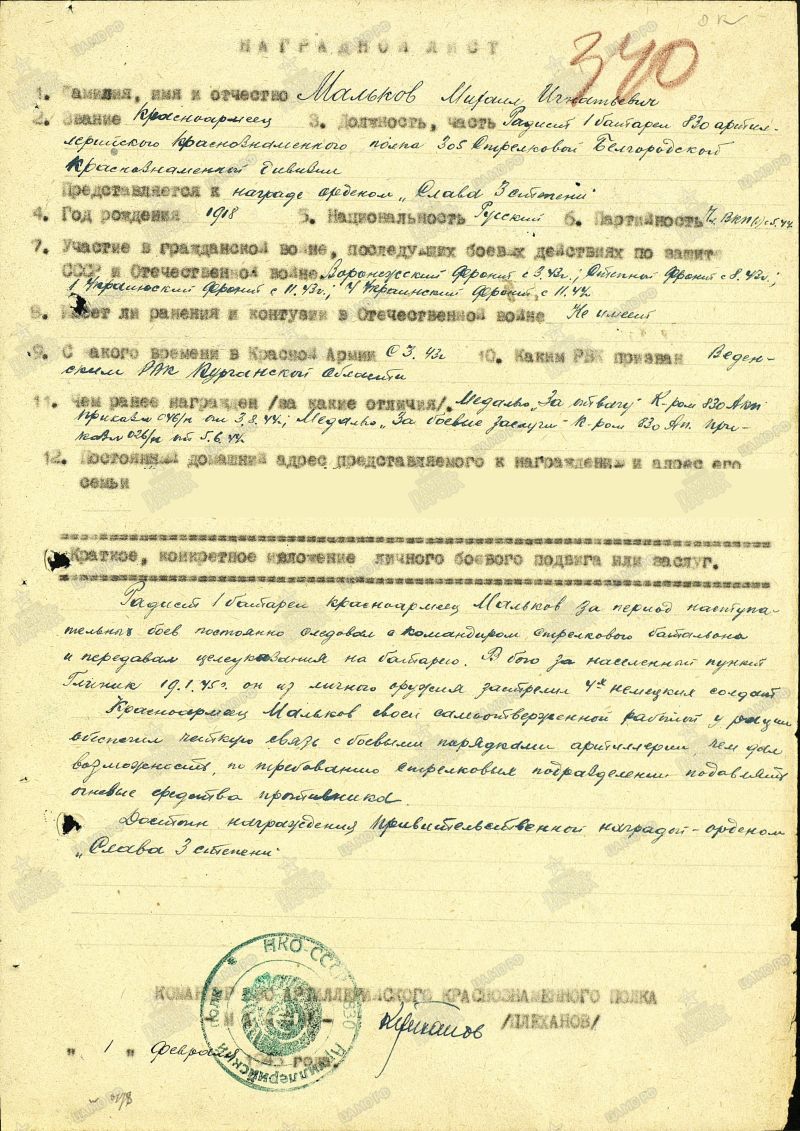 340
НАГРАДНОЙ ЛИСТ
1. Фамилия, имя и отчество Мальков Михаил Игнатьевич
2. Звание красноармеец 3. Должность, часть Радист 1 батареи 830 артил-
лерийского Краснознаменного полка 305 Стрелковой Белгородской
Краснознаменной дивизии
Представляется к награде орденом „Слава 3 степени"
4. Год рождения 1918 5. Национальность Русский 6. Партийность Чл. ВКП(б) с 5.44
7. Участие в гражданской войне, последующих боевых действиях по защите
СССР и Отечественной войне Воронежский фронт с 3.43г.; Степной фронт с 8.43г.;
1 Украинский фронт с 11.43г.; 4 Украинский фронт с 11.44
8. Имеет ли ранения и контузии в Отечественной войне Не имеет
9. С какого времени в Красной Армии с 3.43г 10. Каким РВК призван Веден-
ским РВК Курганской области
11. Чем ранее награжден /за какие отличия/. Медалью „За отвагу" К-ром 830 АКП
приказом 046/н от 3.8.44.; Медалью „За боевые заслуги" К-ром 830 Ап. При-
казом 026/н от 5.6.44.
12. Постоянный домашний адрес представляемого к награждению и адрес его
семьи
Краткое, конкретное изложение личного боевого подвига или заслуг.
Радист 1 батареи красноармеец Мальков за период наступа-
тельных боев постоянно следовал с командиром стрелкового батальона
и передавал целеуказания на батарею. В бою за населенный пункт
Глиник 19.1.45г. он из личного оружия застрелил 4х немецких солдат
Красноармеец Мальков своей самоотверженной работой у рации
обеспечил четкую связь с боевыми порядками артиллерии, чем дал
возможность, по требованию стрелковых подразделений подавлять
огневые средства противника.
Достоин награждения правительственной наградой - орденом
„Слава 3 степени"
НКО-СССР 830 Артиллерийский полк
КОМАНДИР 830 АРТИЛЛЕРИЙСКОГО КРАСНОЗНАМЕННОГО ПОЛКА
/ПЛЕХАНОВ/
" 1 " февраля 1945 года.